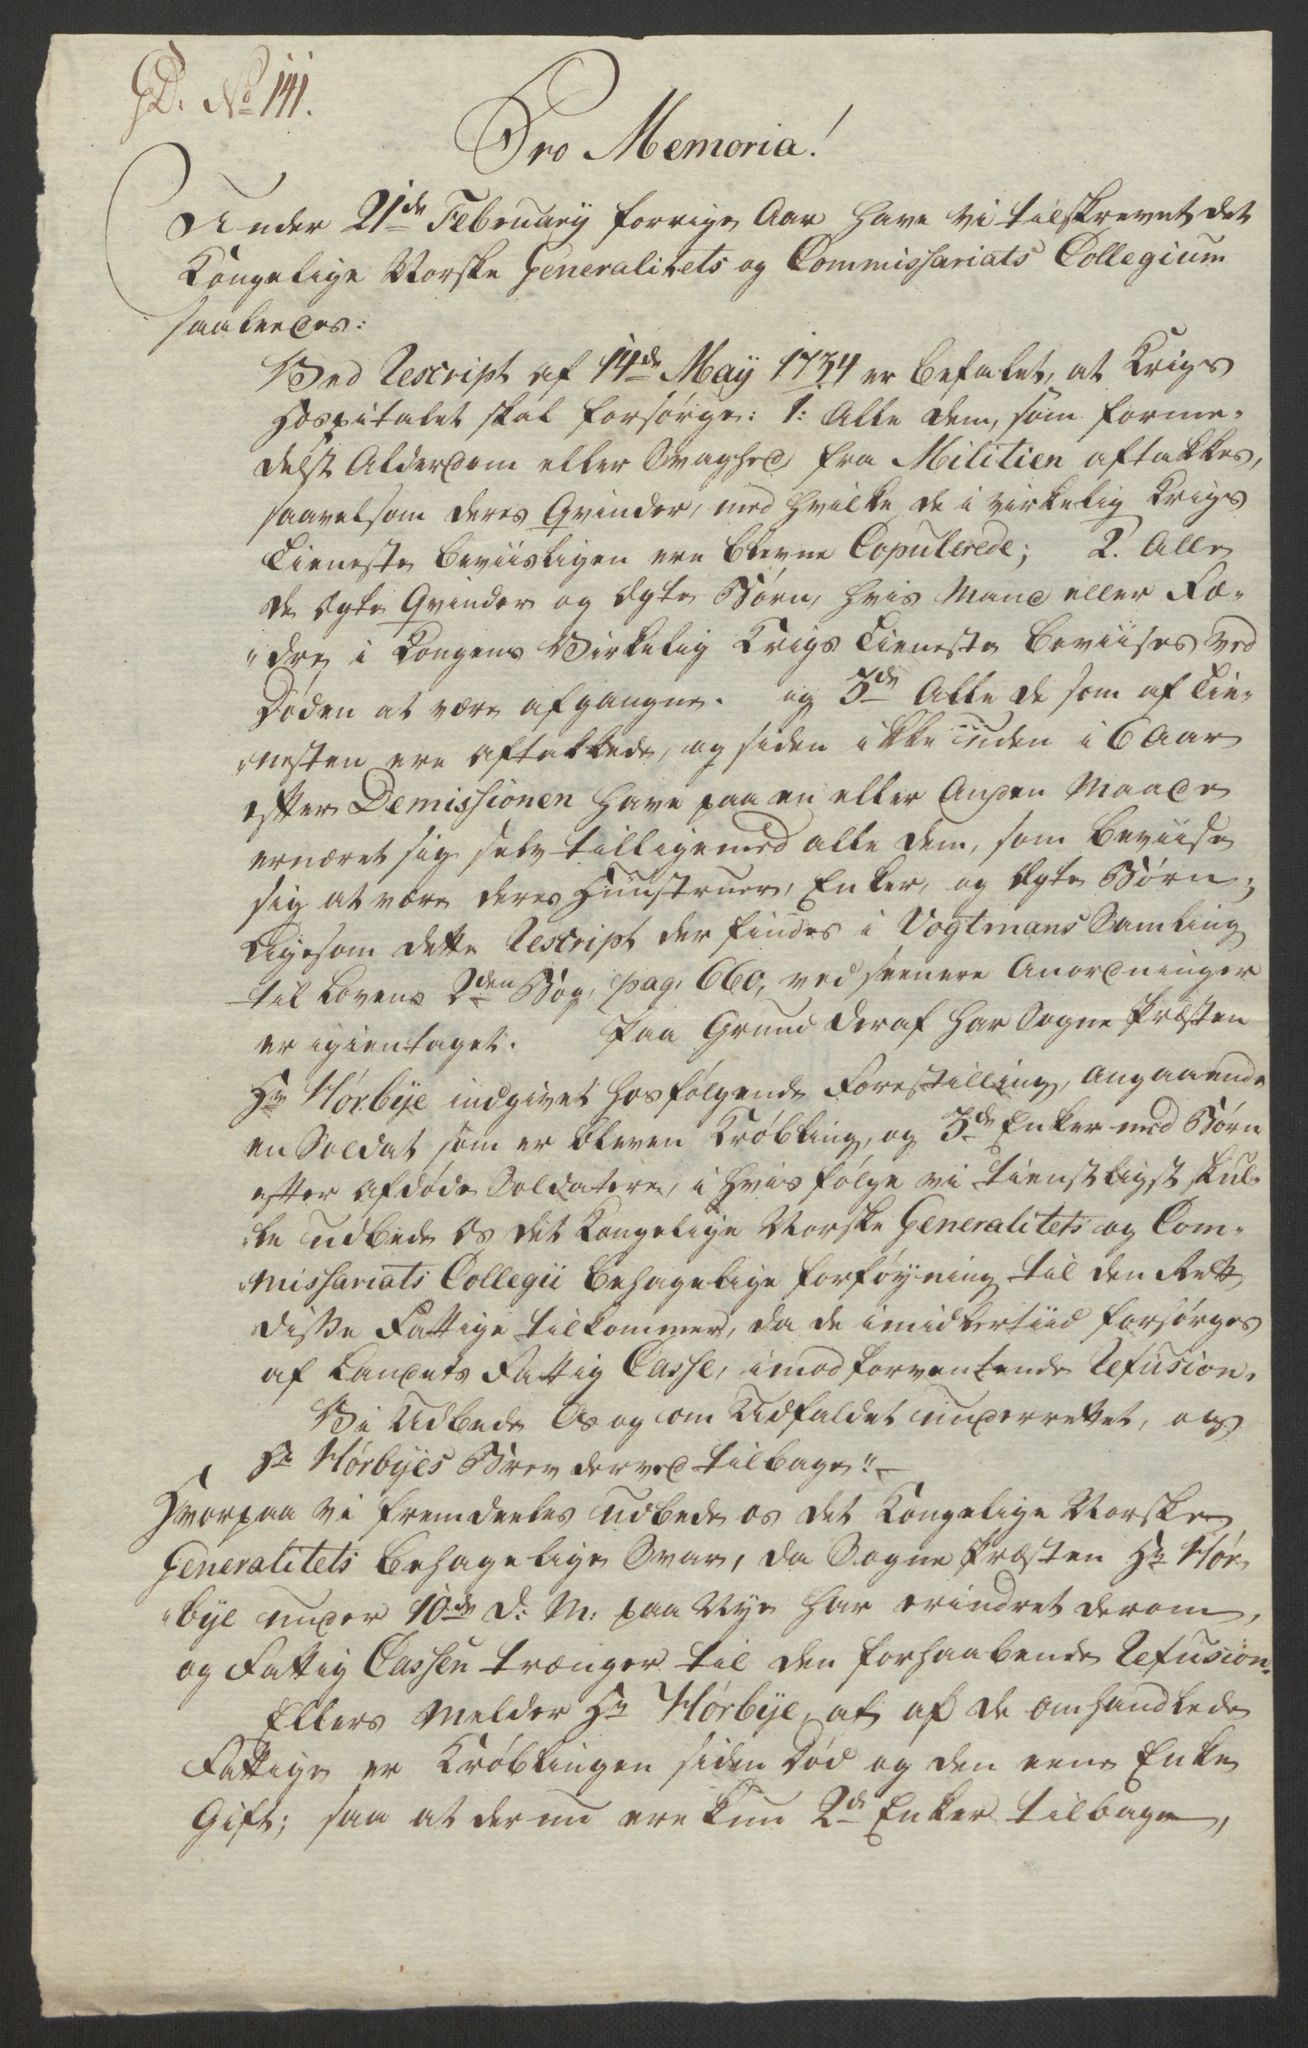 GD. No 141.
Pro Memoria!
Under 21de February forrige Aar have vi tilskrevet det
Kongelige Norske Generalitets og Commissariats Collegium
saaledes:
Ved Rescript af 14de May 1734 er befalet, at Krigs
Hospitalet skal forsørge: 1: Alle dem, som forme-
delst Alderdom eller Svaghed fra Militien aftakkes,
saavelsom deres Qvinder, med hvilke de i virkelig Krigs
Tieneste beviisligen ere blevne Copulerede; 2. Alle
de ægte Qvinder og ægte Børn, hvis Mand eller Fæ-
"dre i Kongens Virkelig Krigs Tieneste beviises ved
Døden at være afgangne. og 3de Alle de som af Tie-
"nesten ere aftakkede, og siden ikke inden i 6 Aar
efter Demissionen have paa en eller Anden Maade
ernæret sig selv tilligemed alle dem, som beviise
sig at være deres Hustruer, Enker, og ægte Børn;
Ligesom dette Rescript der findes i Vogtmans Samling
til Lovens 2den Bog, pag. 660, ved seenere Anordninger
er igientaget. Paa Grund deraf har Sogne Præsten
Hr Hørbye indgivet hosfølgende Forestilling, angaaende
en Soldat som er bleven Krøbling, og 3de Enker med Børn
efter afdøde Soldatere, i hvis følge vi tienstligst skul-
"le udbede os det Kongelige Norske Generalitets og Com-
"missariats Collegii behagelige forføyning til den Rett
disse Fattige tilkommer, da de imidlertiid forsørges
af Landets Fattig Casse, imod forventende Refusion.
Vi Udbede Os og om Udfaldet underrettet, og
Hr Hørbyes Brev derved tilbage."
Hvorpaa vi fremdeeles udbede os det Kongelige Norske
Generalitets behagelige Svar, da Sogne Præsten Hr Hør-
"bye under 10de d: M: paa Nye har erindret derom,
og Fattig Cassen trænger til den forhaabende Refusion.
Ellers melder Hr Hørbye, at af de omhandlede
Fattige er Krøblingen siden død og den eene Enke
Gift; saa at der nu ere kun 2de Enker tilbage,